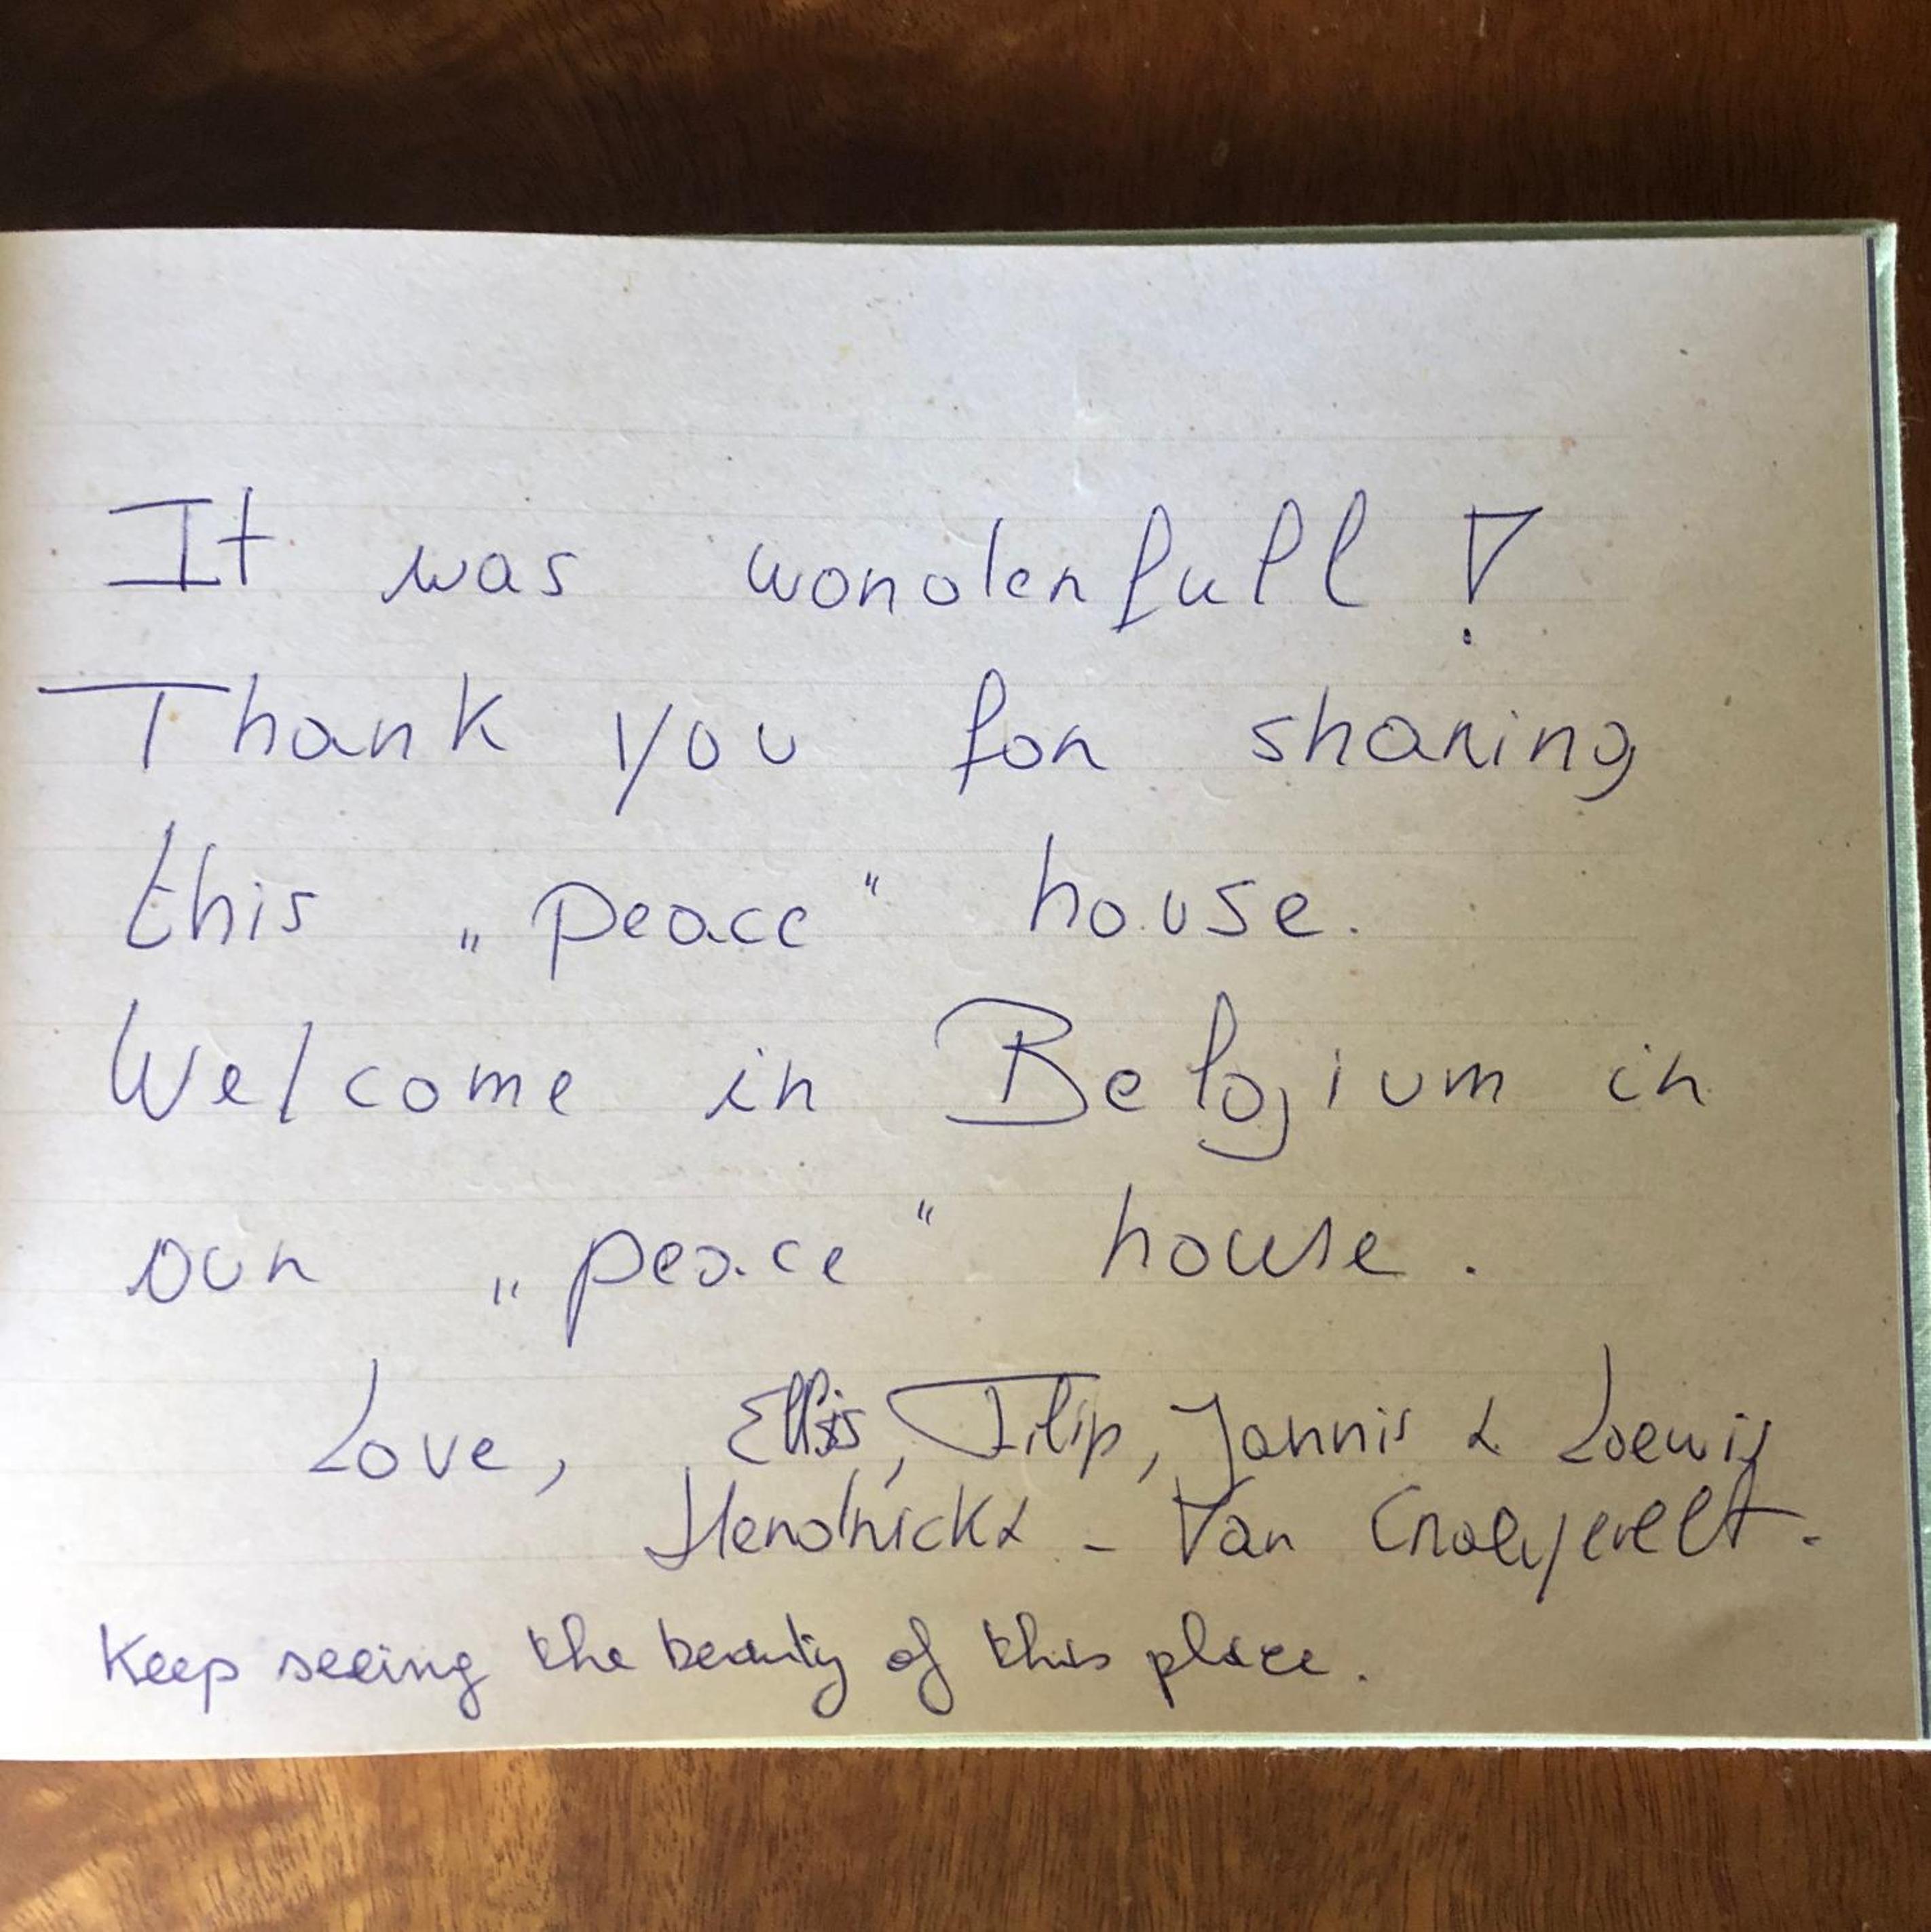 It was wonderfull !
Thank you for sharing
this „peace“ house.
Welcome in Belgium in
our „peace“ house.
Love, Ellis, Filip, Jannis & Loewis
Hendrickx - Van
Keep seeing the beauty of this place.